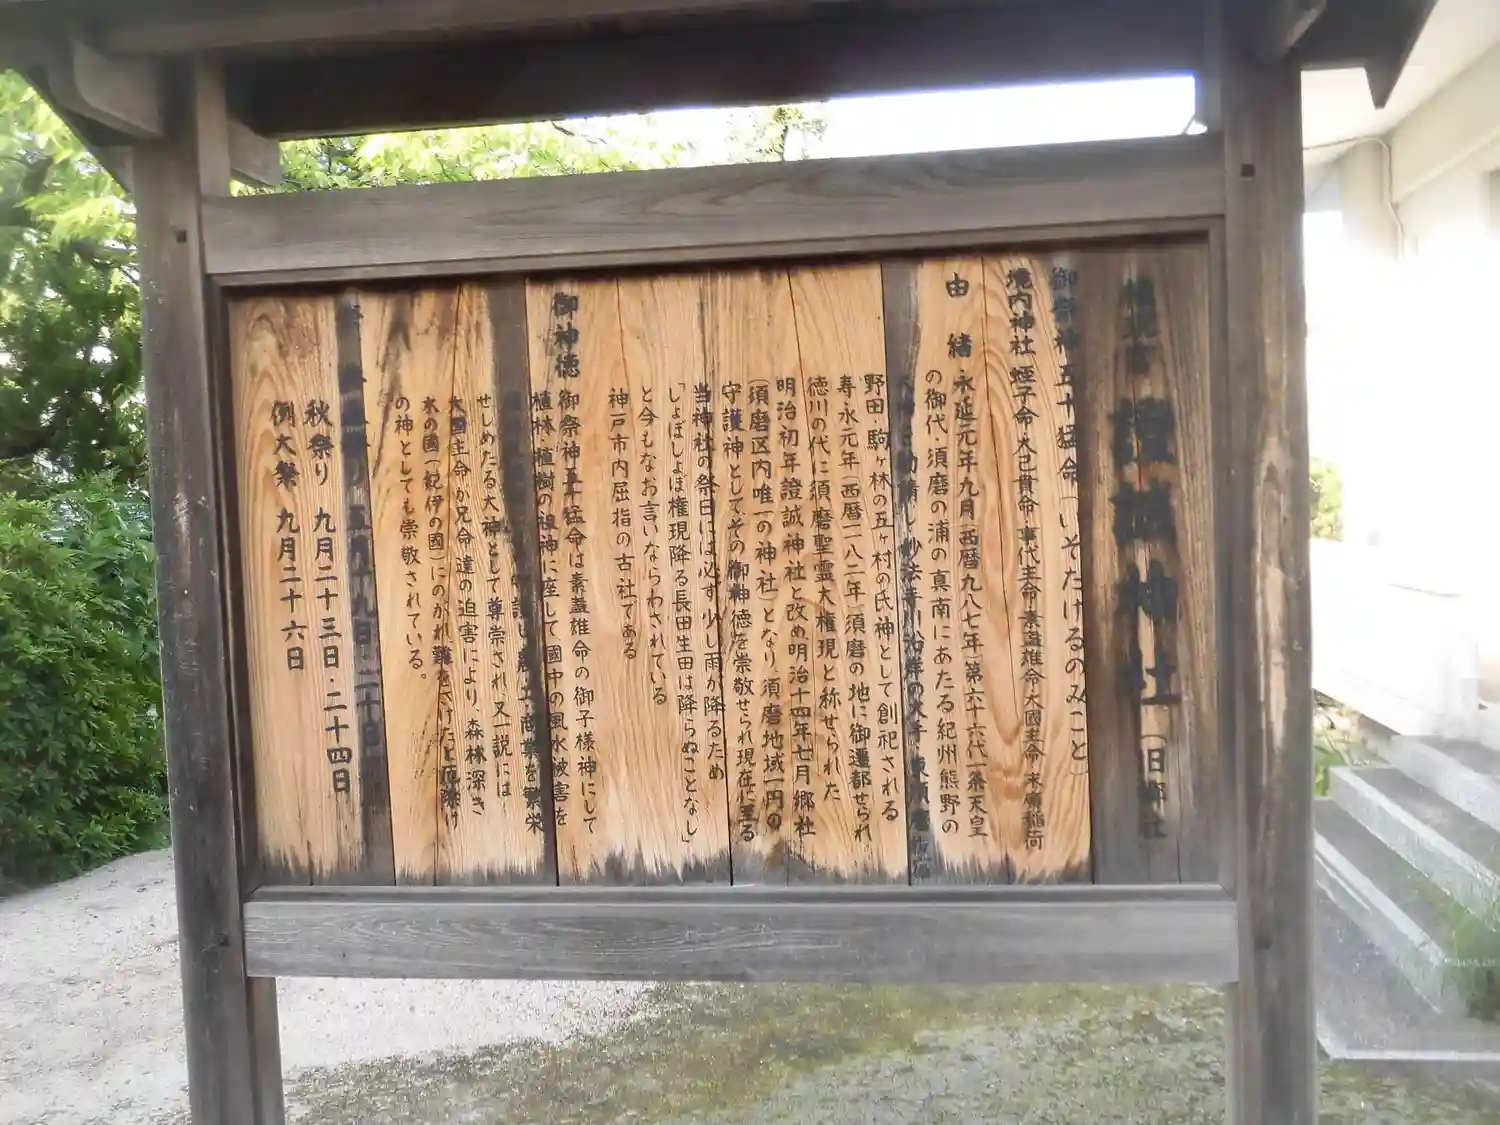 権現宮 證誠神社 (旧郷社)
御祭神 五十猛命(いそたけるのみこと)
境内神社 蛭子命・大己貴命・事代主命・素盞雄命・大國主命・末廣稲荷
由緒 永延元年九月(西暦九八七年)第六十六代一条天皇
の御代・須磨の浦の真南にあたる紀州熊野の
勧請し妙法寺川沿岸の大手・東須磨
野田・駒ヶ林の五ヶ村の氏神として創祀される
寿永元年(西暦一一八二年)須磨の地に御遷都せられ
徳川の代に須磨聖霊大権現と称せられた
明治初年證誠神社と改め明治十四年七月郷社
(須磨区内唯一の神社)となり須磨地域一円の
守護神としてその御神徳を崇敬せられ現在に至る
当神社の祭日には必ず少し雨が降るため
「しょぼしょぼ権現降る長田生田は降らぬことなし」
と今もなお言いならわされている
神戸市内屈指の古社である
御神徳 御祭神五十猛命は素盞雄命の御子様神にして
植林・植樹の祖神に座して國中の風水被害を
農工・商業を繁栄
せしめたる大神として尊崇され又一説には
大國主命が兄命達の迫害により、森林深き
木の國(紀伊の國)にのがれ難をさけたと厄除け
の神としても崇敬されている。
祭り 五月十九日・二十日
秋祭り 九月二十三日・二十四日
例大祭 九月二十六日